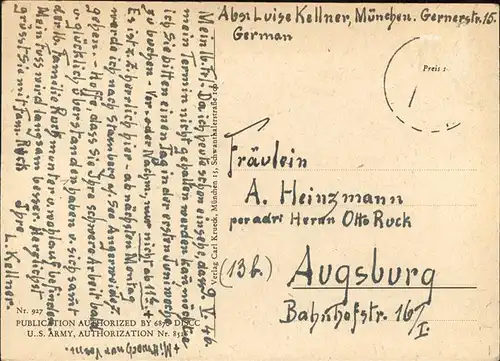 Abs: Luise Kellner, München. Gernerstr. 15.
German
Preis
9. V. 46
Mein lb. Frl. Da ich heute schon einsehe, dass
mein Termin nicht gehalten werden kann, möchte
ich Sie bitten einen Tag in der ersten Juniwoche
zu buchen. Vor- oder Nachm, nur nicht ab 11 ½.+
Es ist z. Z. herrlich hier. ab nächsten Montag
werde ich nach Starnberg a/See Angerweide
gehen. - Hoffe, dass Sie Ihre schwere Arbeit bald
u. glücklich überstanden haben u. sich samt
der lb. Familie Ruck munter u. wohlauf befinden
Mein Fuss wird langsam besser. Herzlichst
grüsst Sie mit Fam. Ruck Ihre
L. Kellner.
+ Mittwoch nur Vorm.
Verlag Carl Kroeck, München 15, Schwanthalerstraße
Fräulein
A. Heinzmann
per adr. Herrn Otto Ruck
(13b.) Augsburg
Bahnhofstr. 16/I
Nr. 927
PUBLICATION AUTHORIZED BY 6870 DISCC
U. S. ARMY, AUTHORIZATION Nr.